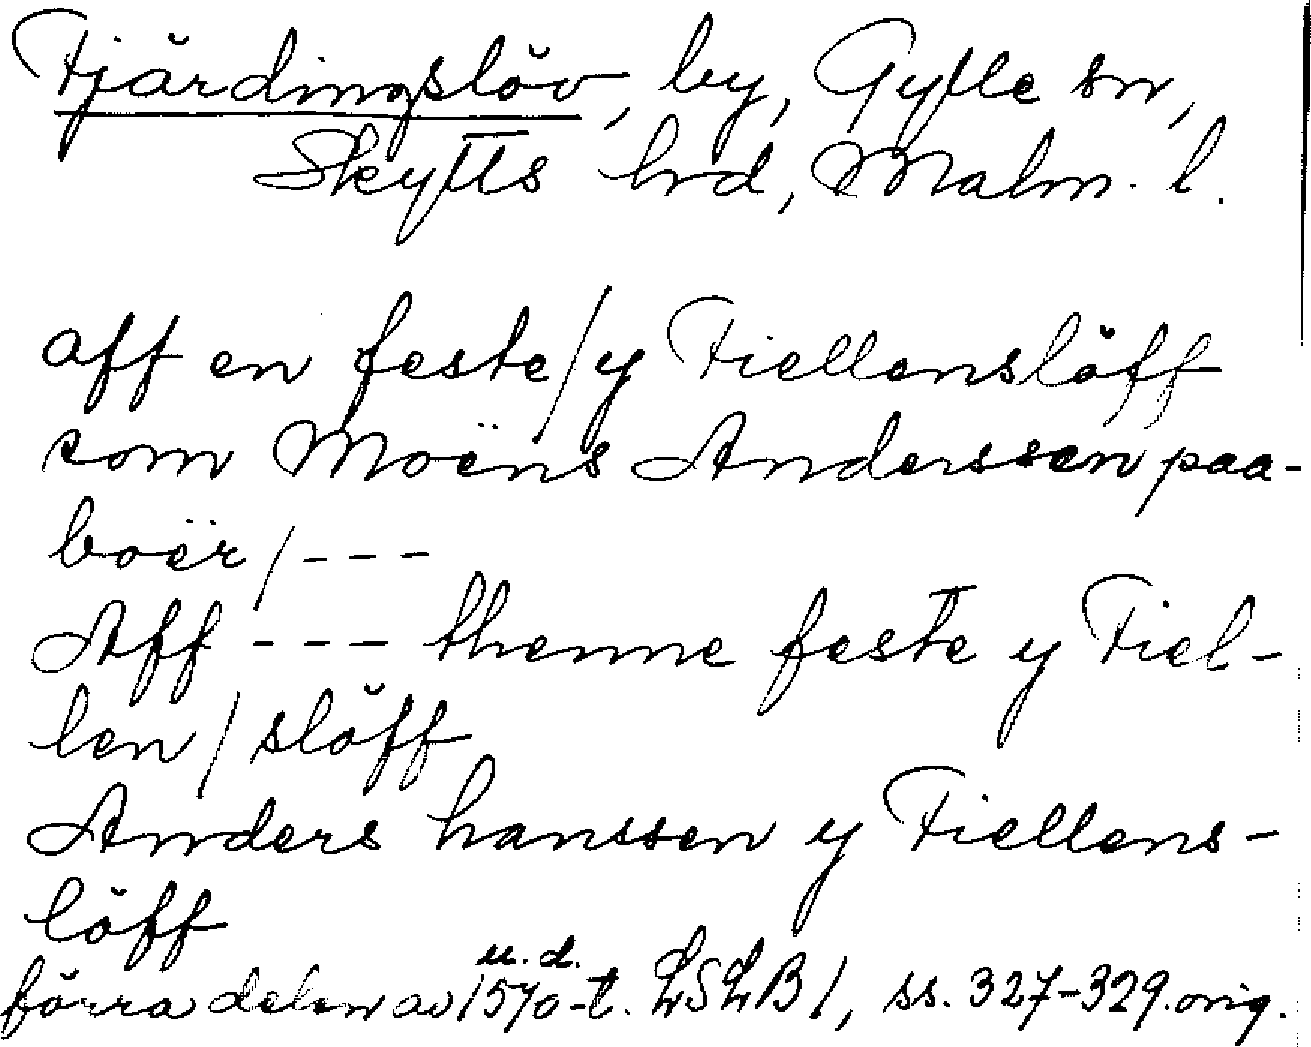 Fjärdingslöv, by, Gylle sn,
Skytts hrd, Malm. l.
aff en feste/y Fiellenslöff
som Moëns Anderssen paa-
boër/---
Aff --- thenne feste y Fiel-
len/slöff
Anders hanssen y Fiellens-
löff
u.d.
förra delen av 1570-t. LSLB 1, ss. 327-329. orig.